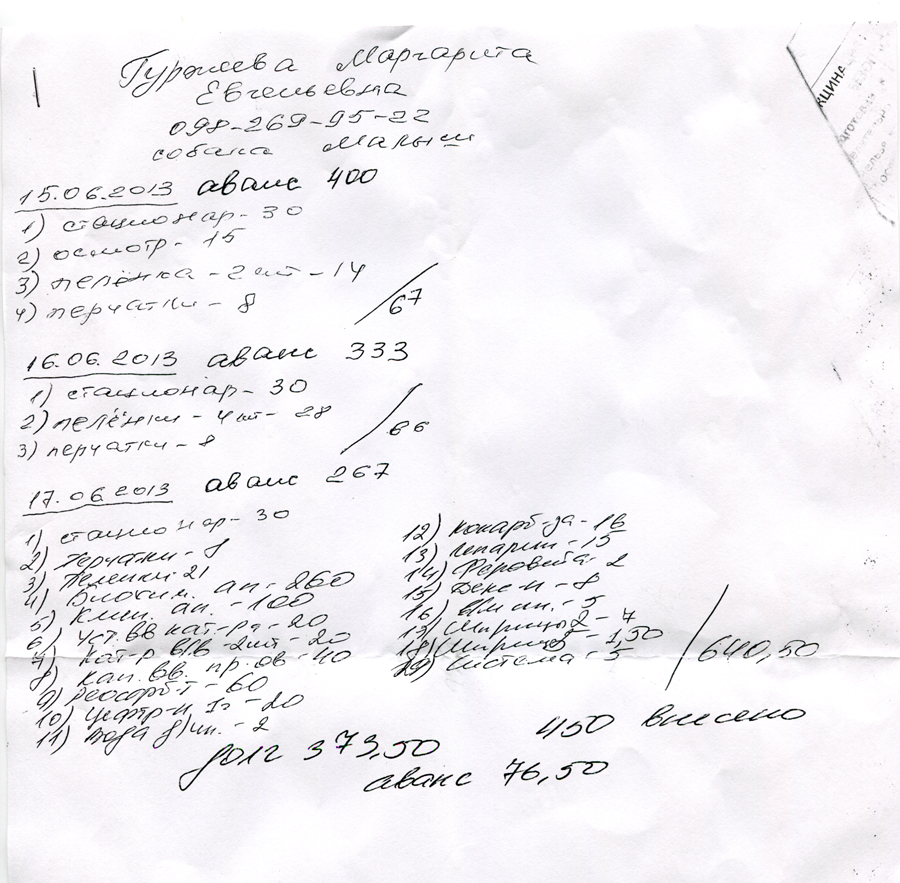 Гуржиева Маргарита
Евгеньевна
098-269-95-22
собака Малыш
15.06.2013 аванс 400
1) стационар - 30
2) осмотр - 15
3) пелёнка - 2 шт - 14
4) перчатки - 8
67
16.06.2013 аванс 333
1) стационар - 30
2) пелёнки - 4 шт - 28
3) перчатки - 8
66
17.06.2013 аванс 267
1) стационар - 30
2) Перчатки - 8
3) Пеленки 21
4) Биохим. ан. - 260
5) Клин. ан. - 100
6) Уст. вв кат-ра - 20
7) Кат-р в/в - 2шт - 20
8) Кап. вв. пр. ов - 40
9) Реосорб-т - 60
10) Цефтр-н 1г - 20
11) Вода д/ин. - 2
12) Кокарб-за - 16
13) Гепарин - 15
14) Феровита 2
15) Декс-н - 8
16) - 5
17) Шприцы 2 - 7
18) Шприц 5 - 1,50
19) Система - 5
640,50
долг 373,50
450 внесено
аванс 76,50
КЦИНА